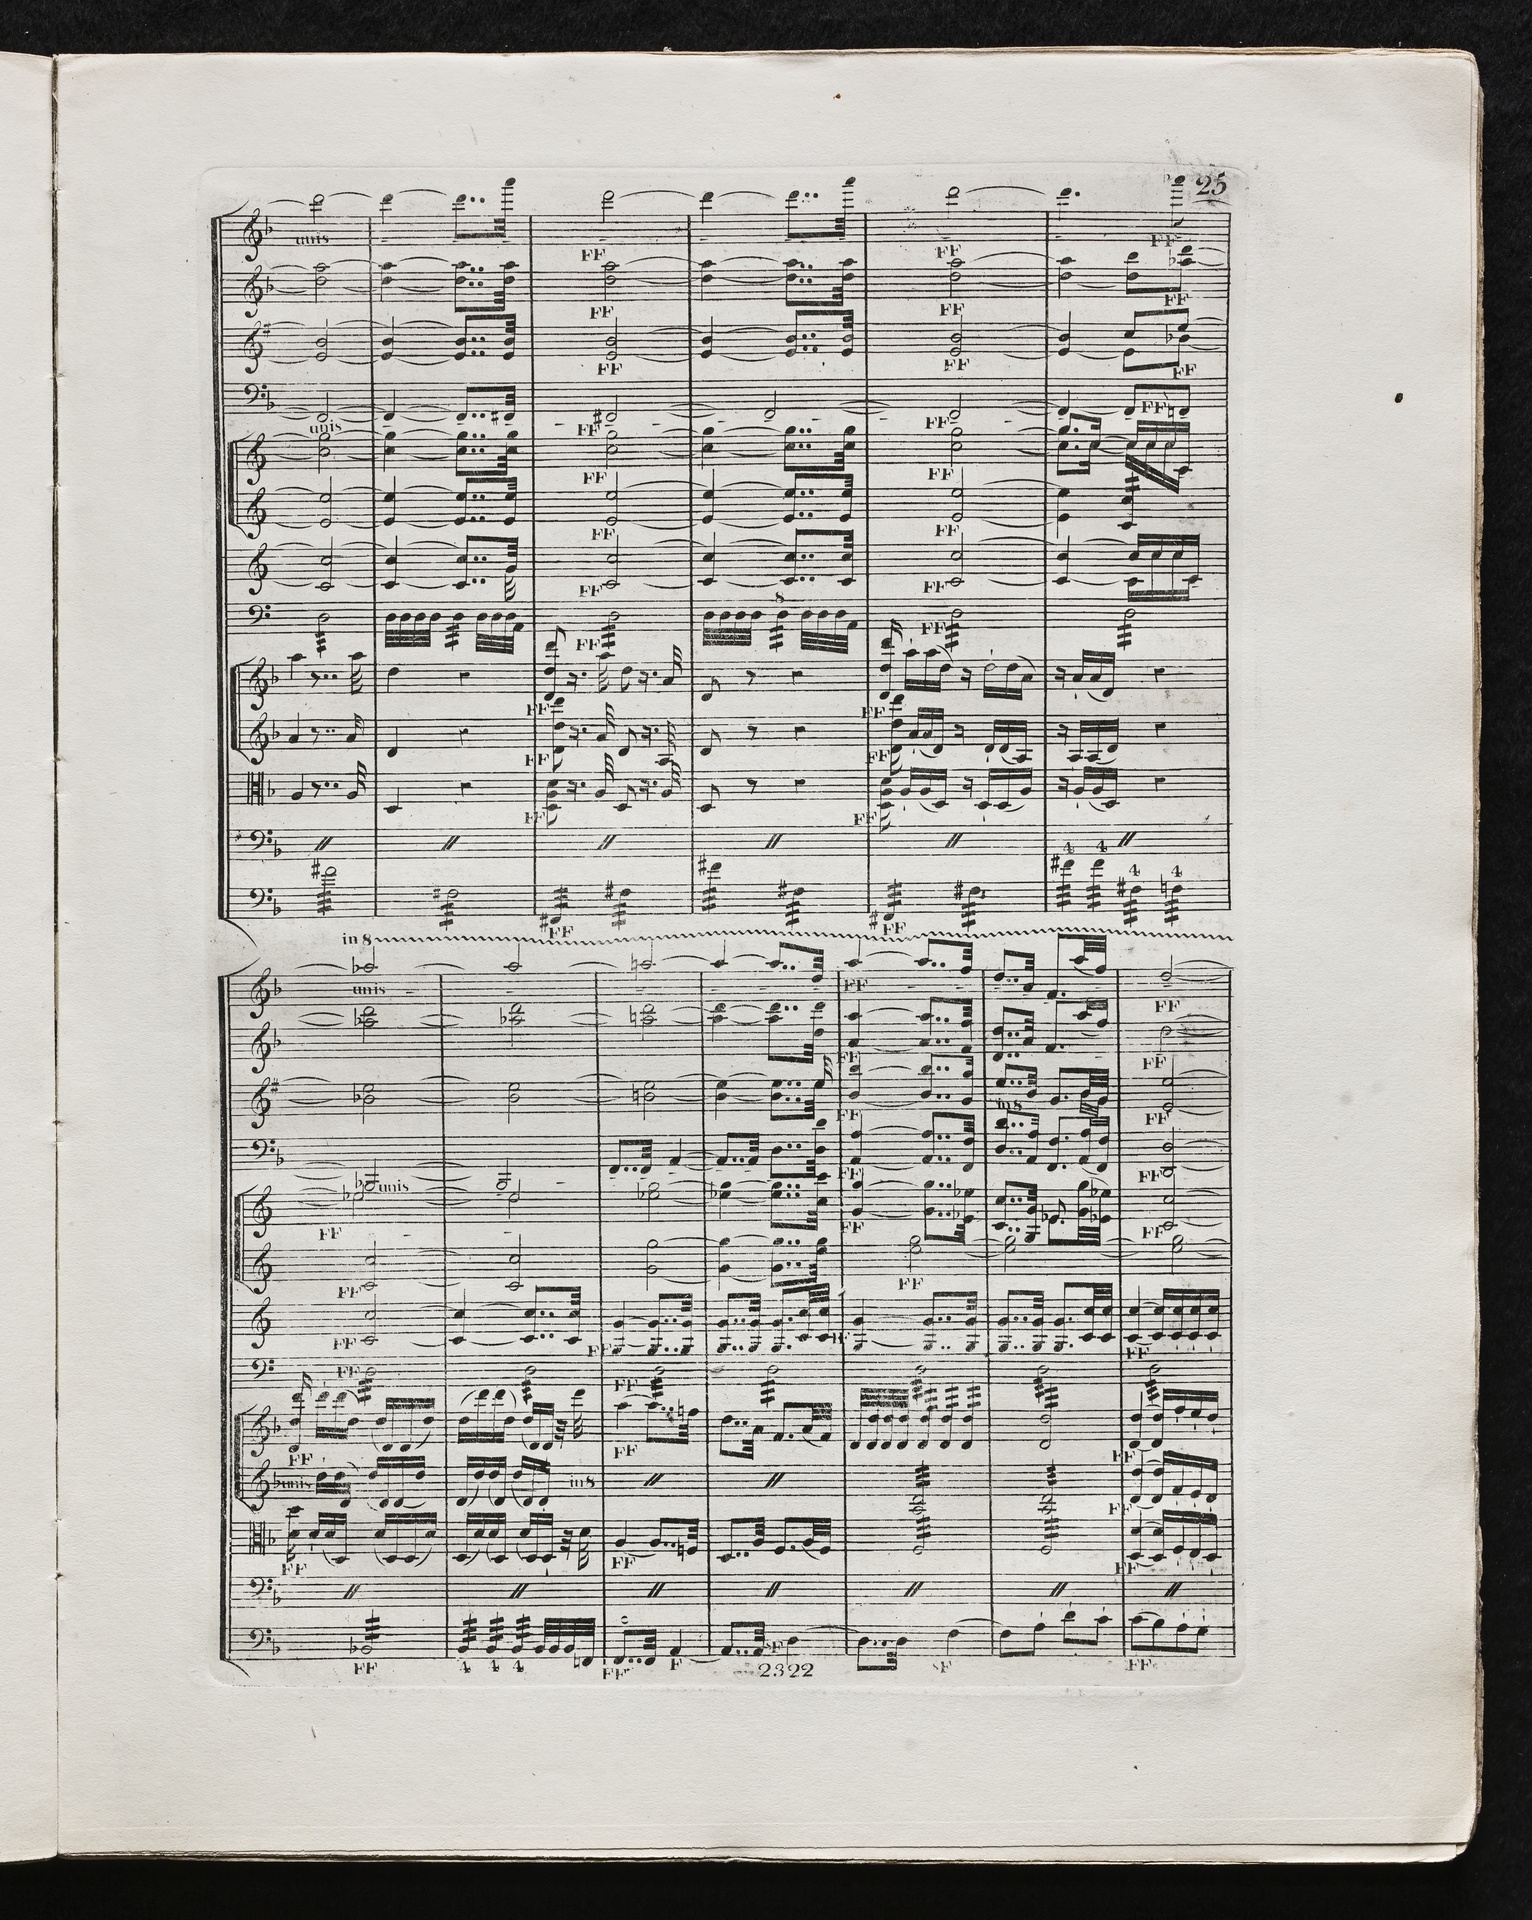 25
unis
FF
FF
FF
FF
FF
FF
FF
FF
unis
FF
FF
FF
FF
FF
FF
FF
FF
FF
FF
8
FF
FF
FF
FF
FF
FF
FF
FF
4 4
4 4
FF
FF
in 8
unis
FF
FF
FF
FF
FF
FF
in 8
FF
FF
unis
FF
FF
FF
FF
FF
FF
FF
FF
FF
FF
FF
FF
FF
FF
unis
in 8
FF
FF
FF
FF
FF
4 4 4
FF
F
SF
SF
FF
2322